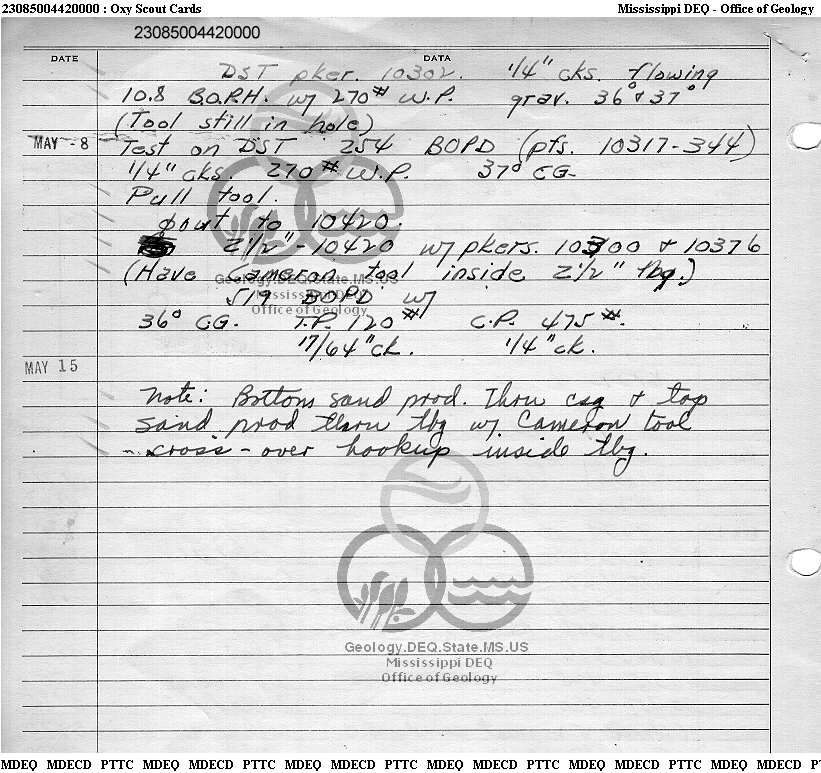 23085004420000 : Oxy Scout Cards Mississippi DEQ - Office of Geology
23085004420000
DATE DATA
DST pker. 10302. 1/4" cks. flowing
10.8 B.O.P.H. w/ 270# W.P. grav. 36° & 37°
(Tool still in hole)
MAY -8 Test on DST 254 BOPD (pfs. 10317-344)
1/4" cks. 270# W.P. 37° CG.
Pull tool.
out to 10420.
2 1/2" - 10420 w/ pkers. 10300 & 10376
(Have Cameron tool inside 2 1/2" tbg.)
Geology.DEQ.State.MS.US
519 BOPD w/
Mississippi DEQ
Office of Geology
36° CG. T.P. 120# C.P. 475#.
17/64" ck. 1/4" ck.
MAY 15
Note: Bottom sand prod. Thru csg & top
sand prod thru tbg w/ Cameron tool
cross-over hookup inside tbg.
Geology.DEQ.State.MS.US
Mississippi DEQ
Office of Geology
MDEQ MDECD PTTC MDEQ MDECD PTTC MDEQ MDECD PTTC MDEQ MDECD PTTC MDEQ MDECD PTTC MDEQ MDECD P